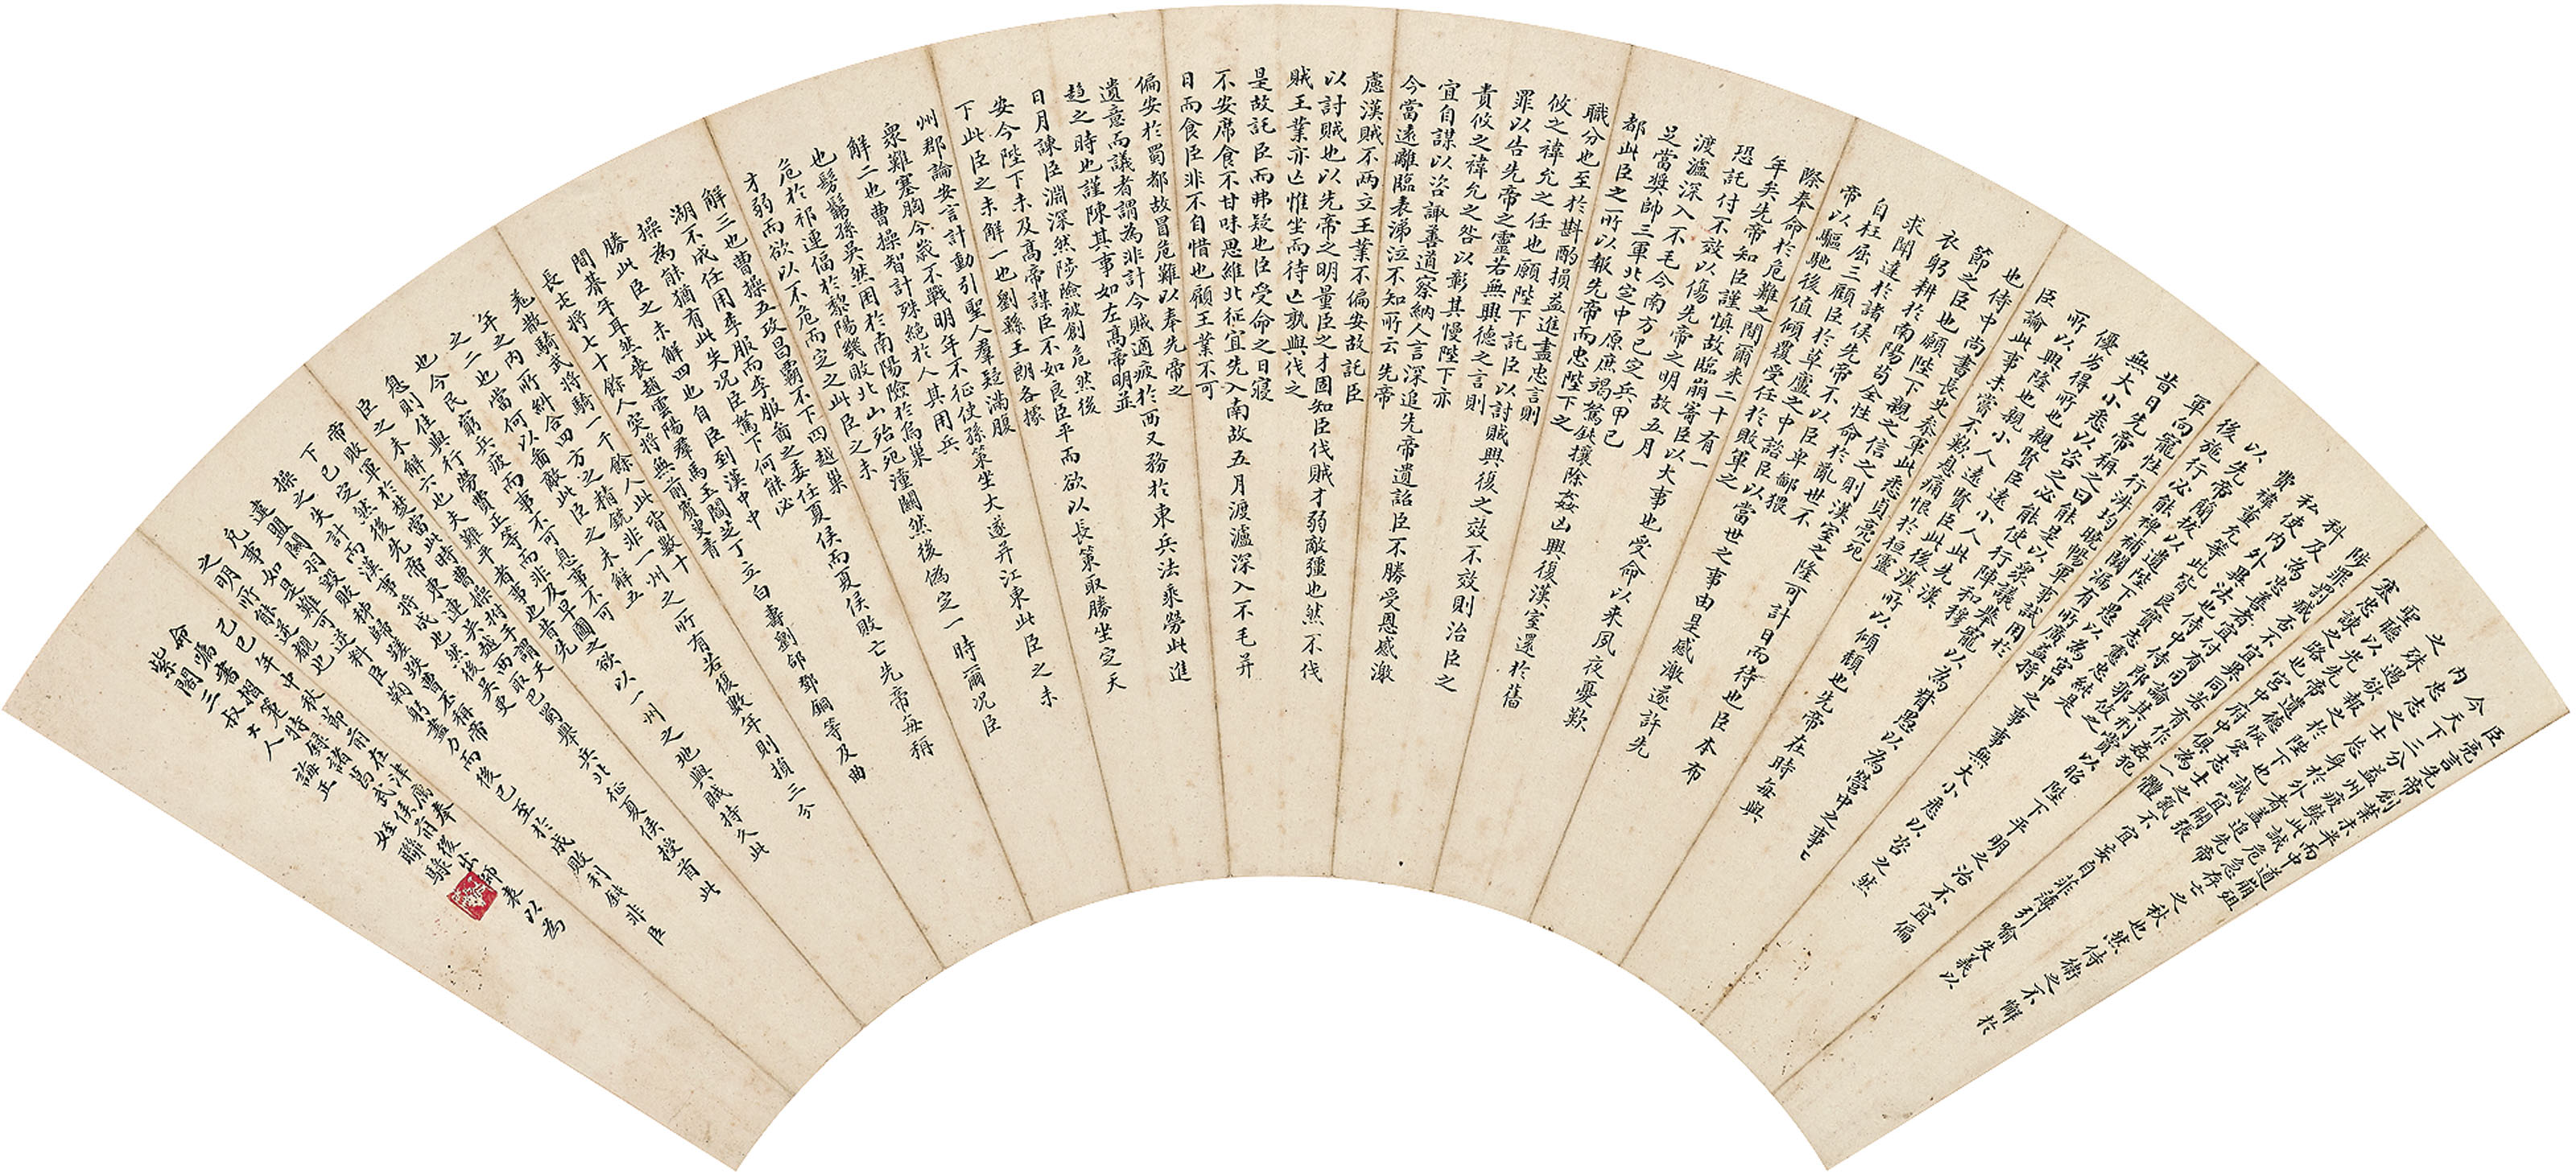 臣亮言先帝創業未半而中道崩殂
今天下三分益州疲獘此誠危急存亡之秋也然侍衛之不懈於
內忠志之士忘身於外者蓋追先帝
之殊遇欲報之於陛下也誠宜開張
聖聽以光先帝遺德恢宏志士之氣不宜妄自菲薄引喻失義以
塞忠諫之路也宮中府中俱為一體
陟罰臧否不宜異同若有作姦犯
科及為忠善者宜付有司論其刑賞以昭陛下平明之治不宜偏
私使內外異法也侍中侍郎郭攸之
費禕董允等此皆良實志慮忠純是
以先帝簡拔以遺陛下愚以為宮中之事事無大小悉以咨之然
後施行必能裨補闕漏有所廣益將
軍向寵性行淑均曉暢軍事試用於
昔日先帝稱之曰能是以眾議舉寵以為督愚以為營中之事事
無大小悉以咨之必能使行陣和穆
優劣得所也親賢臣遠小人此先漢
所以興隆也親小人遠賢臣此後漢所以傾頹也先帝在時每與
臣論此事未嘗不歎息痛恨於桓靈
也侍中尚書長史參軍此悉貞亮死
節之臣也願陛下親之信之則漢室之隆可計日而待也臣本布
衣躬耕於南陽苟全性命於亂世不
求聞達於諸侯先帝不以臣卑鄙猥
自枉屈三顧臣於草廬之中諮臣以當世之事由是感激遂許先
帝以驅馳後值傾覆受任於敗軍之
際奉命於危難之間爾來二十有一
年矣先帝知臣謹慎故臨崩寄臣以大事也受命以來夙夜憂歎
恐託付不效以傷先帝之明故五月
渡瀘深入不毛今南方已定兵甲已
足當獎帥三軍北定中原庶竭駑鈍攘除姦凶興復漢室還於舊
都此臣之所以報先帝而忠陛下之
職分也至於斟酌損益進盡忠言則
攸之禕允之任也願陛下託臣以討賊興復之效不效則治臣之
罪以告先帝之靈若無興德之言則
責攸之禕允之咎以彰其慢陛下亦
宜自謀以咨諏善道察納人言深追先帝遺詔臣不勝受恩感激
今當遠離臨表涕泣不知所云先帝
慮漢賊不兩立王業不偏安故託臣
以討賊也以先帝之明量臣之才固知臣伐賊才弱敵彊也然不伐
賊王業亦亡惟坐而待亡孰與伐之
是故託臣而弗疑也臣受命之日寢
不安席食不甘味思維北征宜先入南故五月渡瀘深入不毛并
日而食臣非不自惜也顧王業不可
偏安於蜀都故冒危難以奉先帝之
遺意而議者謂為非計今賊適疲於西又務於東兵法乘勞此進
趨之時也謹陳其事如左高帝明並
日月諫臣淵深然涉險被創危然後
安今陛下未及高帝謀臣不如良臣平而欲以長策取勝坐定天
下此臣之未解一也劉繇王朗各據
州郡論安言計動引聖人羣疑滿腹
眾難塞胸今歲不戰明年不征使孫策坐大遂并江東此臣之未
解二也曹操智計殊絕於人其用兵
也髣髴孫吳然困於南陽險於烏巢
危於祁連偪於黎陽幾敗北山殆死潼關然後偽定一時爾況臣
才弱而欲以不危而定之此臣之未
解三也曹操五攻昌霸不下四越巢
湖不成任用李服而李服圖之委任夏侯而夏侯敗亡先帝每稱
操為能猶有此失況臣駑下何能必
勝此臣之未解四也自臣到漢中中
間朞年耳然喪趙雲陽羣馬玉閻芝丁立白壽劉郃鄧銅等及曲
長屯將七十餘人突將無前賨叟青
羌散騎武將騎一千餘人此皆數十
年之內所糾合四方之精銳非一州之所有若復數年則損三分
之二也當何以圖敵此臣之未解五
也今民窮兵疲而事不可息事不可
息則住與行勞費正等而非及早圖之欲以一州之地與賊持久此
臣之未解六也夫難平者事也昔先
帝敗軍於楚當此時曹操拊手謂天
下已定然後先帝東連吳越西取巴蜀舉兵北征夏侯授首此
操之失計而漢事將成也然後吳更
違盟關羽毀敗秭歸蹉跌曹丕稱帝
凡事如是難可逆料臣鞠躬盡力而後已至於成敗利鈍非臣
之明所能逆覩也
己巳年中秋節前在津寓奉
命書箑特錄諸葛武侯前後出師表以為
紫閣三叔大人誨正
姪聯騄